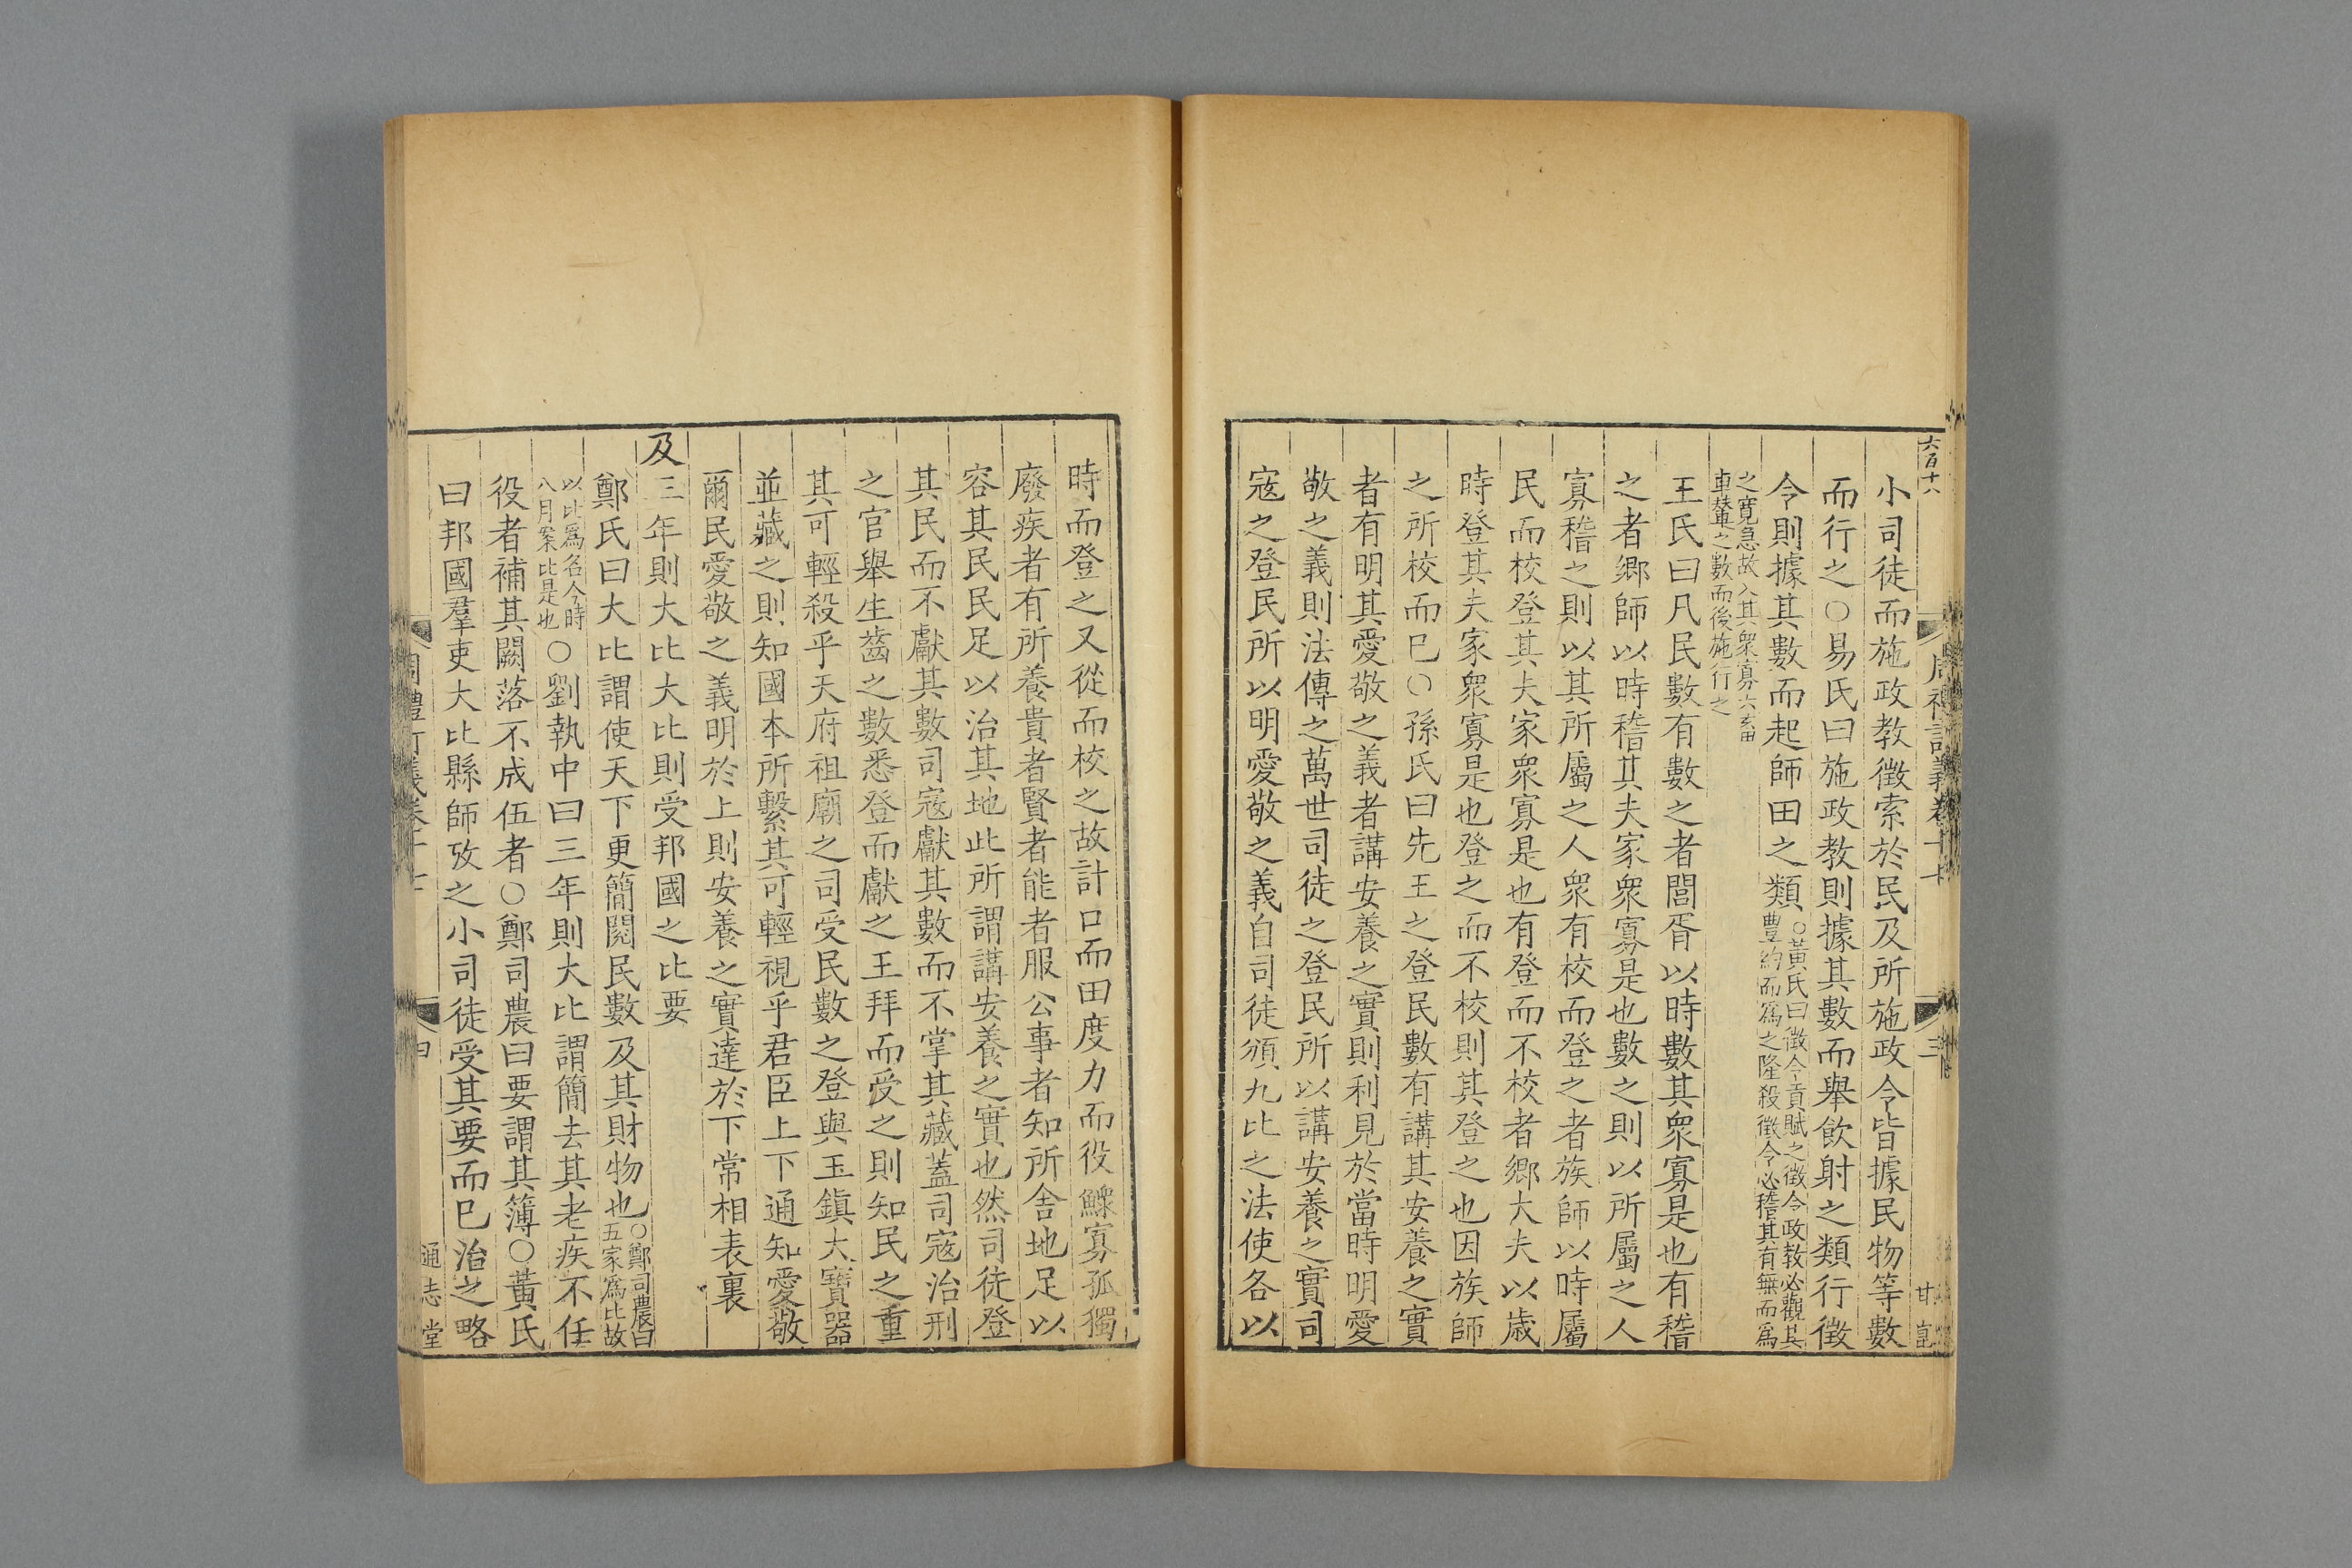 六百十八
周禮訂義卷十七
三
甘
小司徒而施政教徵索於民及所施政令皆據民物等數
而行之○易氏曰施政教則據其數而舉飲射之類行徵
令則據其數而起師田之類○黃氏曰徵令貢賦之徵令政教必觀其
豐約而爲之隆殺徵令必稽其有無而爲
之寬急故入其衆寡六畜
車輦之數而後施行之
王氏曰凡民數有數之者閭胥以時數其衆寡是也有稽
之者鄉師以時稽其夫家衆寡是也數之則以所屬之人
寡稽之則以其所屬之人衆有校而登之者族師以時屬
民而校登其夫家衆寡是也有登而不校者鄉大夫以歲
時登其夫家衆寡是也登之而不校則其登之也因族師
之所校而已○孫氏曰先王之登民數有講其安養之實
者有明其愛敬之義者講安養之實則利見於當時明愛
敬之義則法傳之萬世司徒之登民所以講安養之實司
寇之登民所以明愛敬之義自司徒頒九比之法使各以
時而登之又從而校之故計口而田度力而役鰥寡孤獨
廢疾者有所養貴者賢者能者服公事者知所舍地足以
容其民民足以治其地此所謂講安養之實也然司徒登
其民而不獻其數司寇獻其數而不掌其藏蓋司寇治刑
之官舉生齒之數悉登而獻之王拜而受之則知民之重
其可輕殺乎天府祖廟之司受民數之登與玉鎮大寶器
並藏之則知國本所繫其可輕視乎君臣上下通知愛敬
爾民愛敬之義明於上則安養之實達於下常相表裏
及三年則大比大比則受邦國之比要
鄭氏曰大比謂使天下更簡閱民數及其財物也○鄭司農曰
五家爲比故
以比爲名今時
八月案比是也○劉執中曰三年則大比謂簡去其老疾不任
役者補其闕落不成伍者○鄭司農曰要謂其簿○黃氏
曰邦國羣吏大比縣師攷之小司徒受其要而已治之略
周禮訂義卷十七
四
通志堂